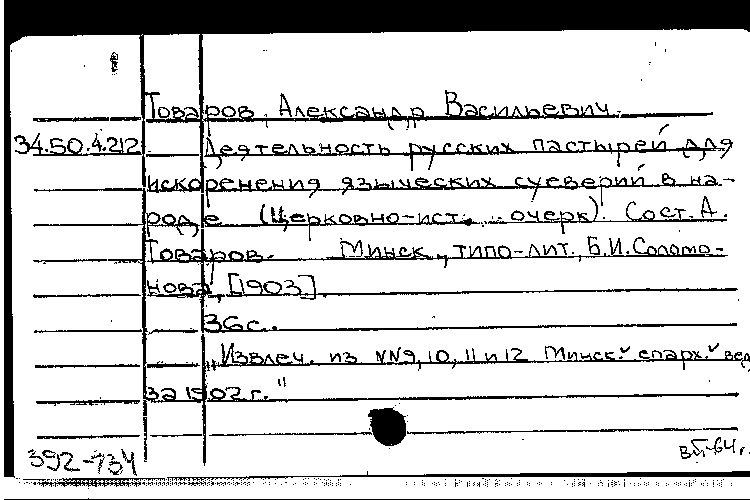 Товаров, Александр Васильевич.
34.50.4.212 Деятельность русских пастырей для
искоренения языческих суеверий в на-
роде (Церковно-ист. очерк). Сост. А.
Товаров. Минск, типо-лит. Б.И. Соломо-
нова, [1903].
36 с.
"Извлеч. из NN9, 10, 11 и 12 Минск. епарх. вед.
за 1902 г."
392-734